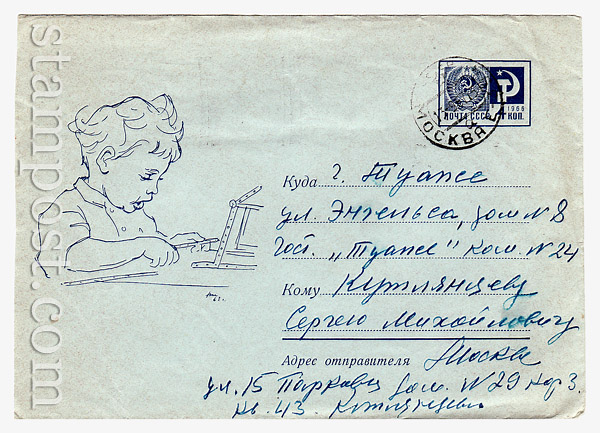 stampost.com
МОСКВА
ПОЧТА СССР
1966
4 КОП.
Куда г. Туапсе
ул. Энгельса, дом N 8
гост. „Туапсе" ком. N 24
Кому Кутлянцеву
Сергею Михайловичу
Адрес отправителя Москва
ул. 15 Парковая дом. N 29 кор 3.
кв. 43. Кутлянцевы